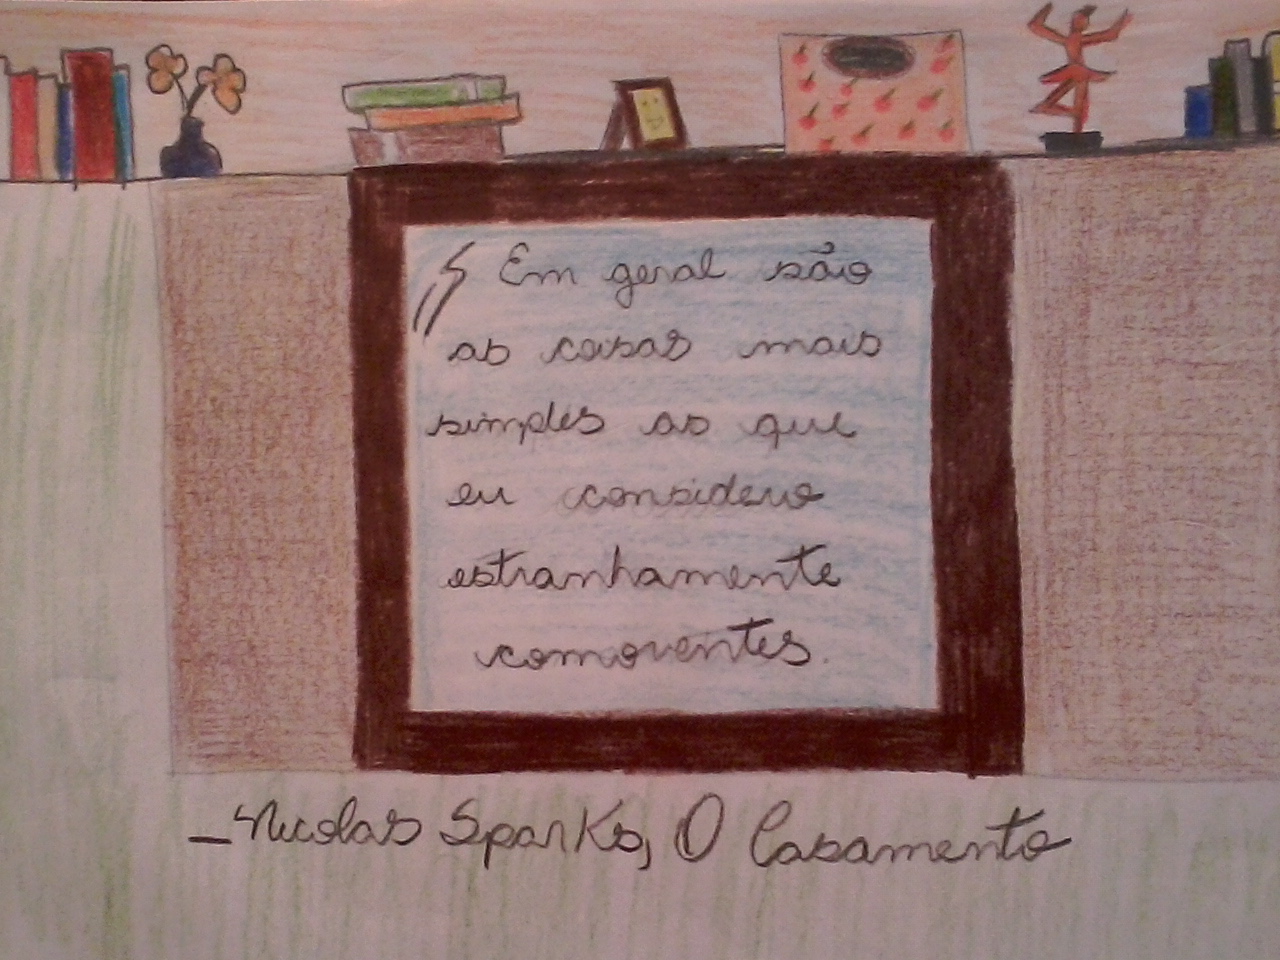 Em geral são
as coisas mais
simples as que
eu considero
estranhamente
comoventes.
_Nicolas Sparks, O Casamento